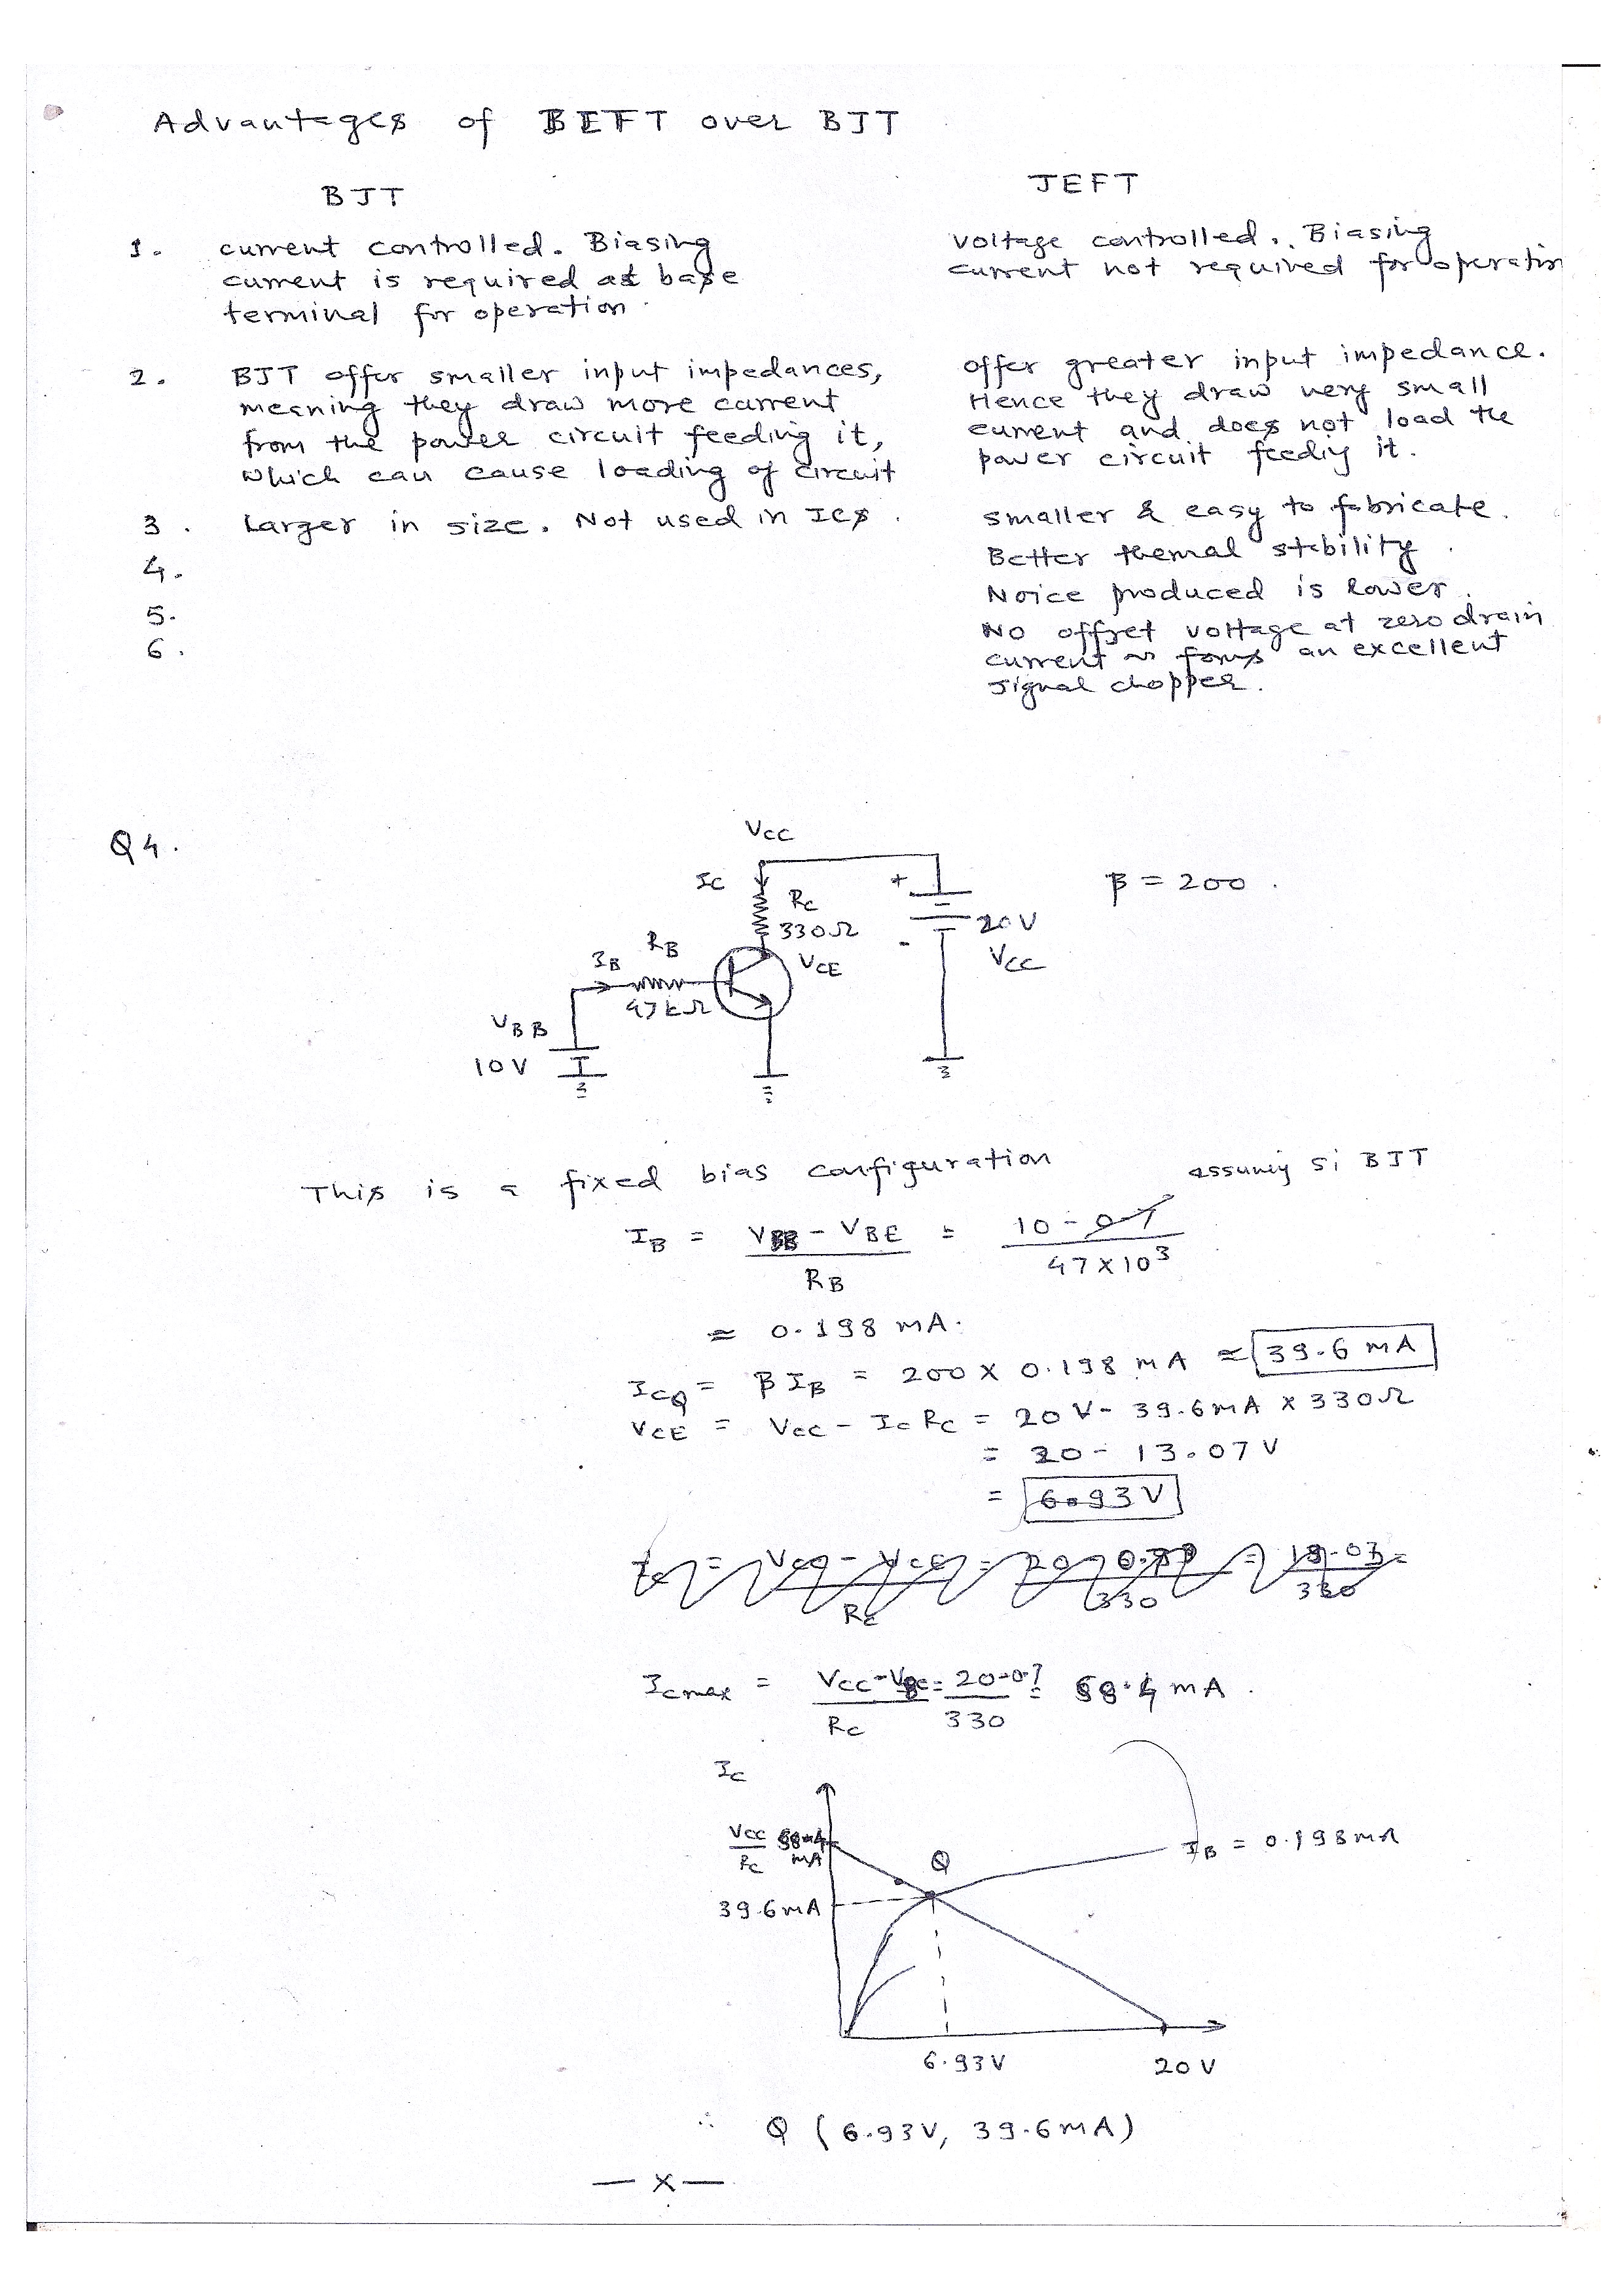 Advantages of BEFT over BJT
BJT
JEFT
1. current controlled. Biasing
current is required at base
terminal for operation.
voltage controlled. Biasing
current not required for operation
2. BJT offer smaller input impedances,
meaning they draw more current
from the power circuit feeding it,
which can cause loading of circuit
offer greater input impedance.
Hence they draw very small
current and does not load the
power circuit feediy it.
3. Larger in size. Not used in ICs.
smaller & easy to fabricate.
4. Better themal stability.
5. Noice produced is lower.
6. No offset voltage at zero drain
current forms an excellent
signal chopper.
Q4.
VCC
IC
RC
330Ω
+
-
20V
VCC
β = 200.
RB
IB
47kΩ
VCE
VBB
10V
This is a fixed bias configuration
assumiy si BJT
IB = VBB - VBE / RB = 10 - 0.7 / 47×10³
≈ 0.198 mA.
ICQ = βIB = 200 × 0.198 mA ≈ 39.6 mA
VCE = VCC - IC RC = 20V - 39.6mA × 330Ω
= 20 - 13.07V
= 6.93V
RC 330 330
Icmax = VCC - / RC = 20-0.7 / 330 = 58.4 mA.
IC
VCC / RC 58.4 mA
Q
IB = 0.198mA
39.6mA
6.93V
20V
∴ Q (6.93V, 39.6mA)
— x —